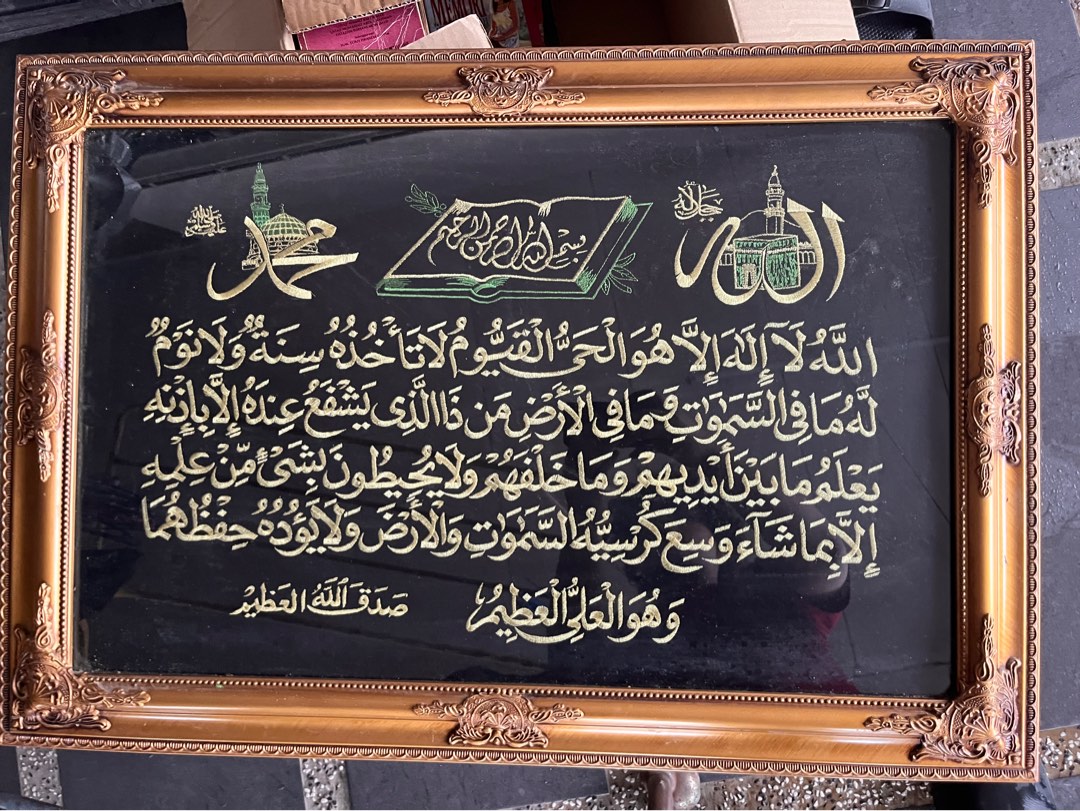 MEMORI
الله جل جلاله
بسم الله الرحمن الرحيم
محمد صلى الله عليه وسلم
اللَّهُ لَآ إِلَٰهَ إِلَّا هُوَ الْحَيُّ الْقَيُّومُ لَا تَأْخُذُهُ سِنَةٌ وَلَا نَوْمٌ
لَّهُ مَا فِي السَّمَٰوَٰتِ وَمَا فِي الْأَرْضِ مَن ذَا الَّذِي يَشْفَعُ عِندَهُ إِلَّا بِإِذْنِهِ
يَعْلَمُ مَا بَيْنَ أَيْدِيهِمْ وَمَا خَلْفَهُمْ وَلَا يُحِيطُونَ بِشَيْءٍ مِّنْ عِلْمِهِ
إِلَّا بِمَا شَآءَ وَسِعَ كُرْسِيُّهُ السَّمَٰوَٰتِ وَالْأَرْضَ وَلَا يَؤُدُهُ حِفْظُهُمَا
وَهُوَ الْعَلِيُّ الْعَظِيمُ
صَدَقَ اللَّهُ الْعَظِيمْ